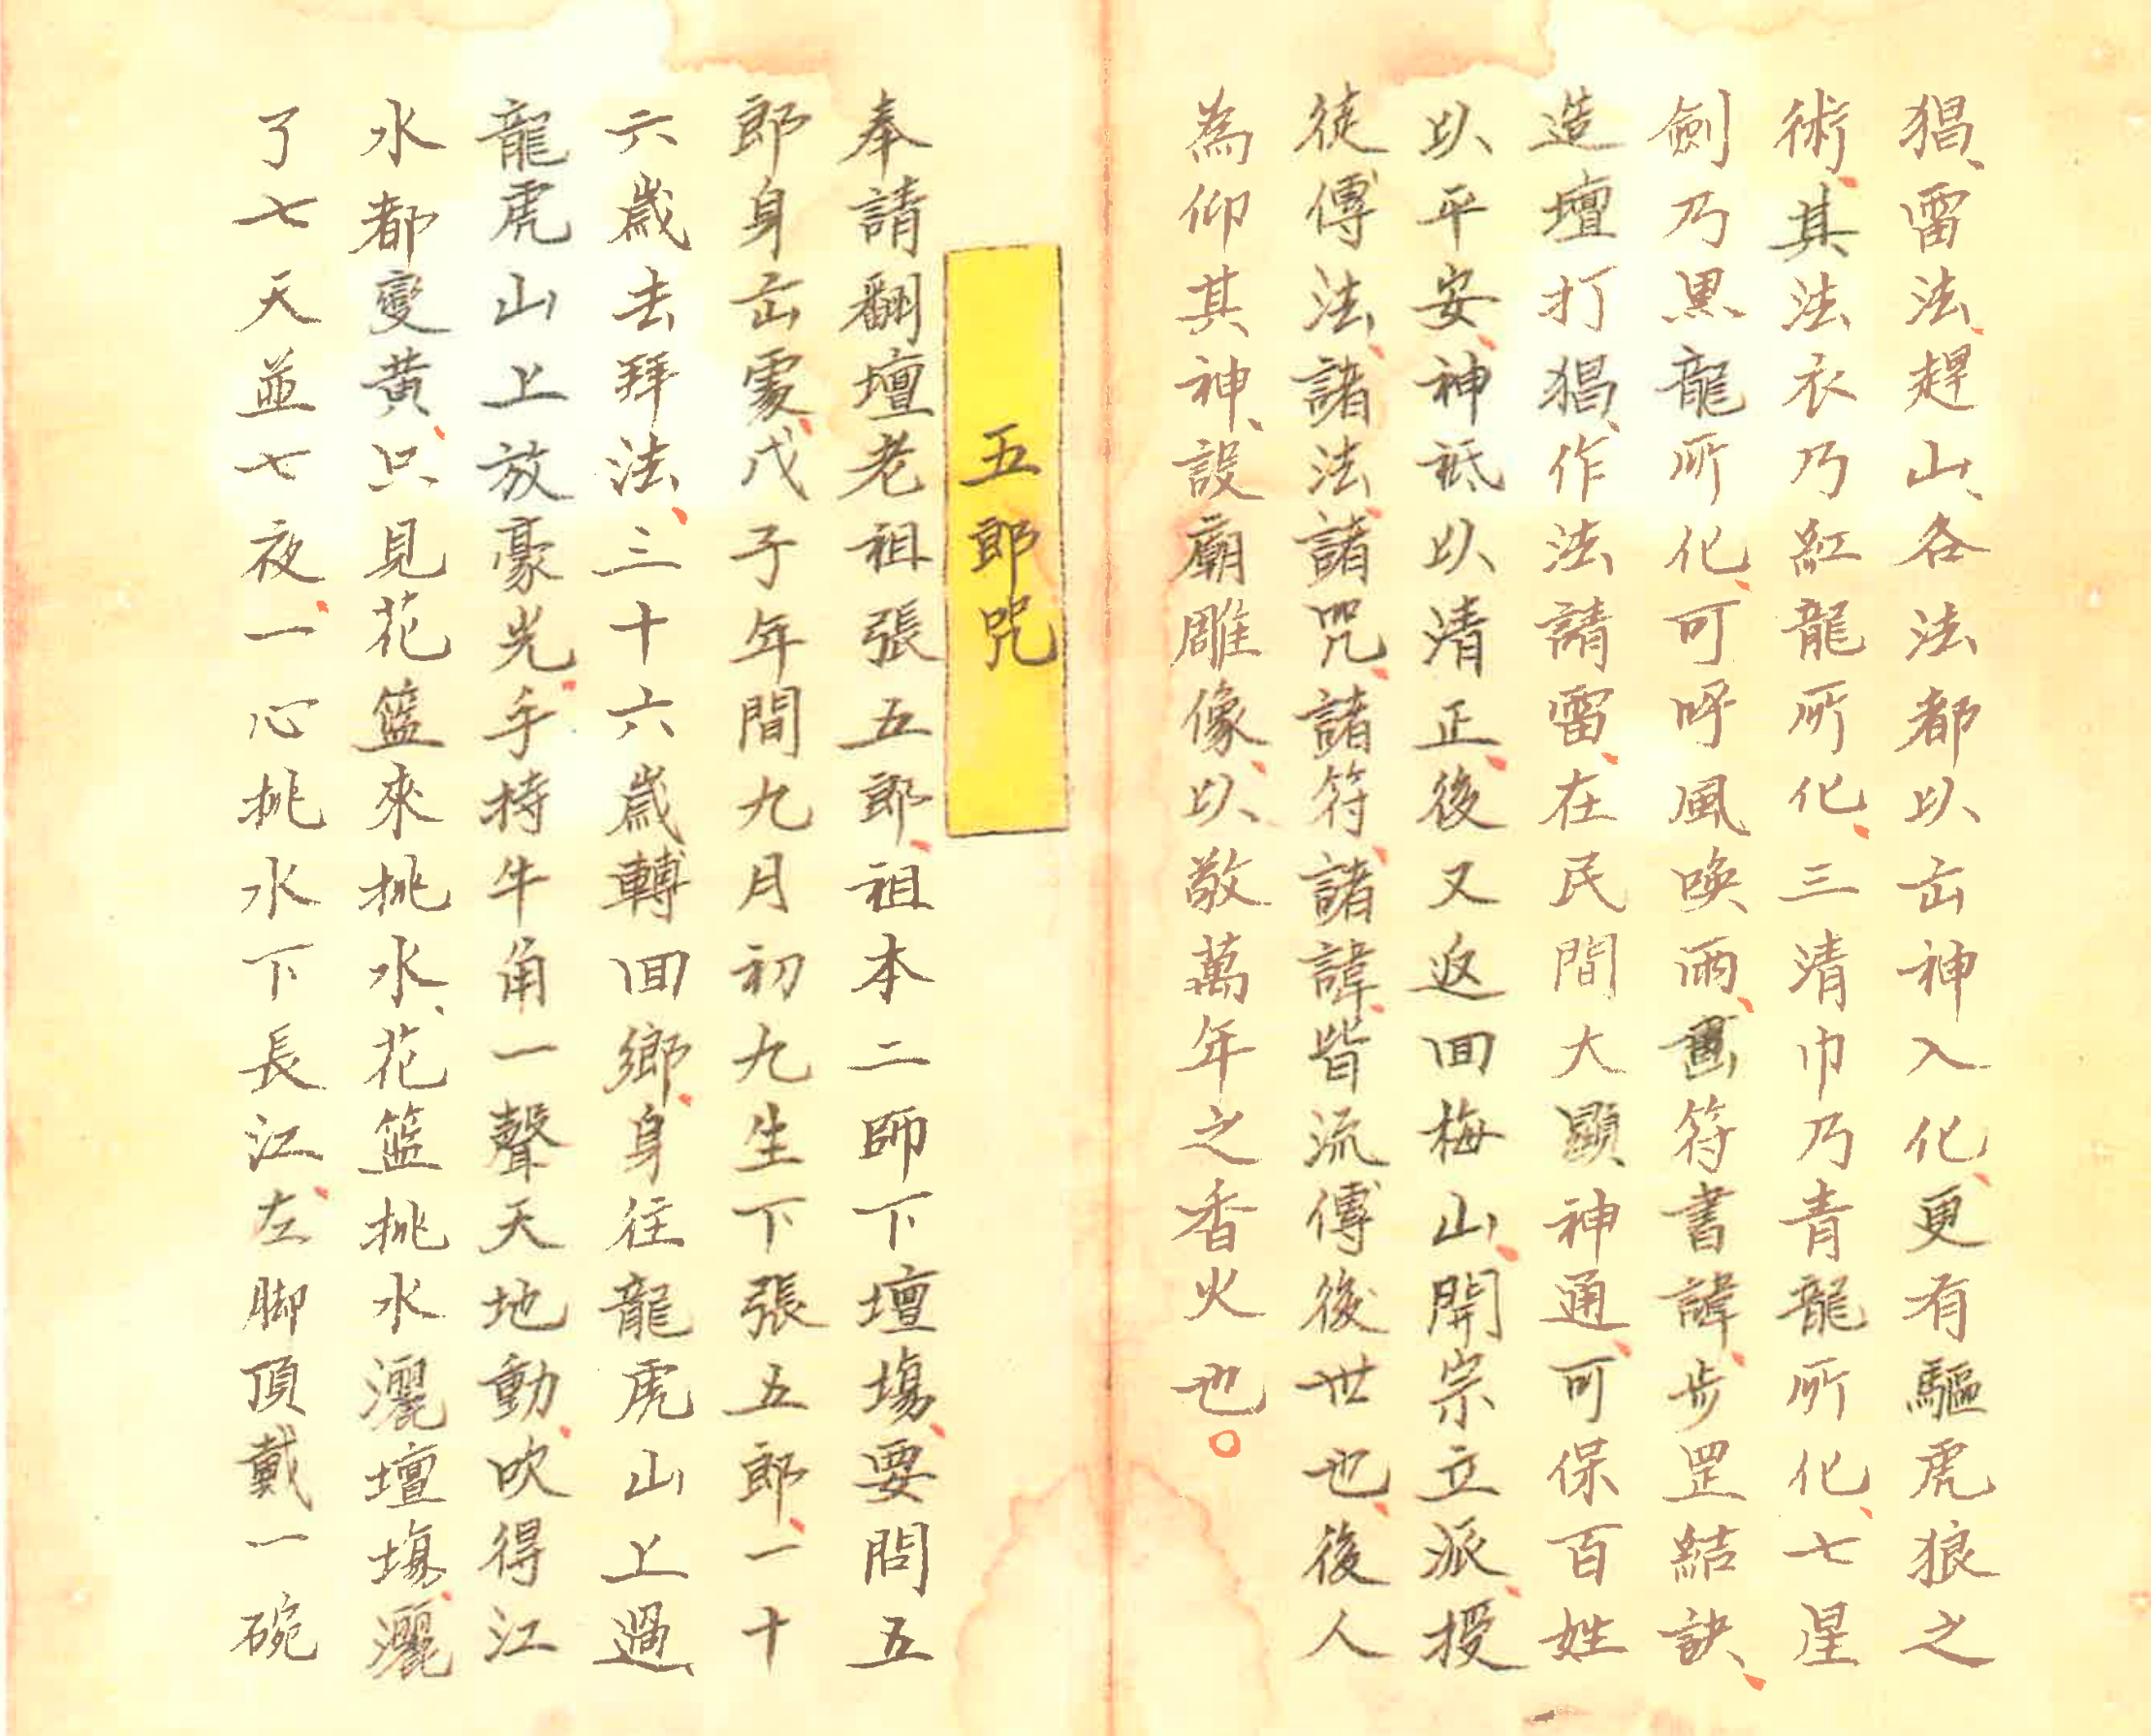 猖、雷法、趕山、各法都以出神入化、更有驅虎狼之
術、其法衣乃紅龍所化、三清巾乃青龍所化、七星
劍乃黑龍所化、可呼風喚雨、畫符書諱、步罡結訣、
造壇打猖、作法請雷、在民間大顯神通、可保百姓
以平安、神祗以清正、後又返回梅山、開宗立派、授
徒傳法、諸法、諸咒、諸符、諸諱、皆流傳後世也、後人
為仰其神、設廟雕像、以敬萬年之香火也。
五郎咒
奉請翻壇老祖張五郎、祖本二師下壇場、要問五
郎身出處、戊子年間九月初九生下張五郎、一十
六歲去拜法、三十六歲轉回鄉、身往龍虎山上過
龍虎山上放豪光、手持牛角一聲天地動、吹得江
水都變黃、只見花籃來挑水、花籃挑水灑壇場、灑
了七天並七夜、一心挑水下長江、左腳頂戴一碗